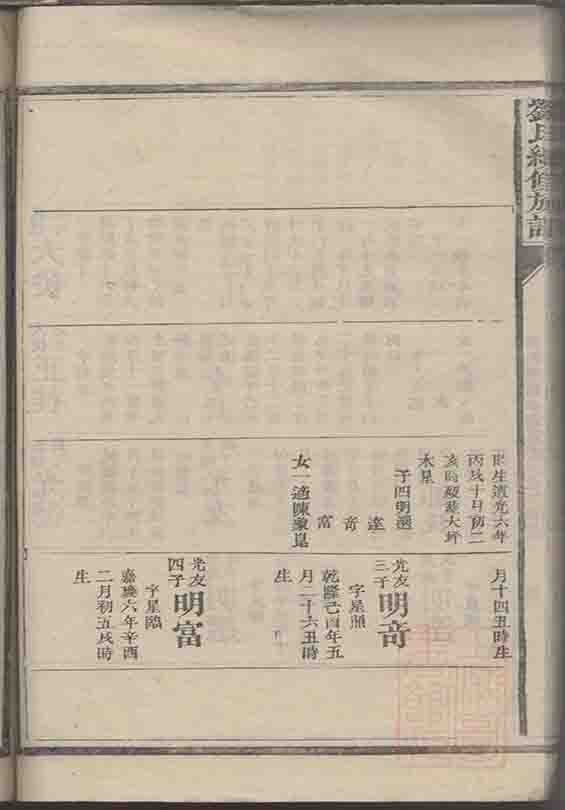 劉氏續修族譜
時生道光六年
丙戌十月初二
亥時歿葬大坪
木星
子四明選
達
奇
富
女一適陳象崑
月十四丑時生
光友三子
明奇
字星照
乾隆己酉年五
月二十六丑時
生
光友四子
明富
字星臨
嘉慶六年辛酉
二月初五戌時
生